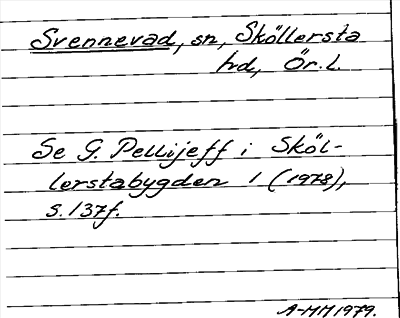 Svennevad, sn, Sköllersta
hd, Ör. l.
Se G. Pellijeff i Sköl-
lerstabygden 1 (1978),
s. 137f.
A-MM 1979.